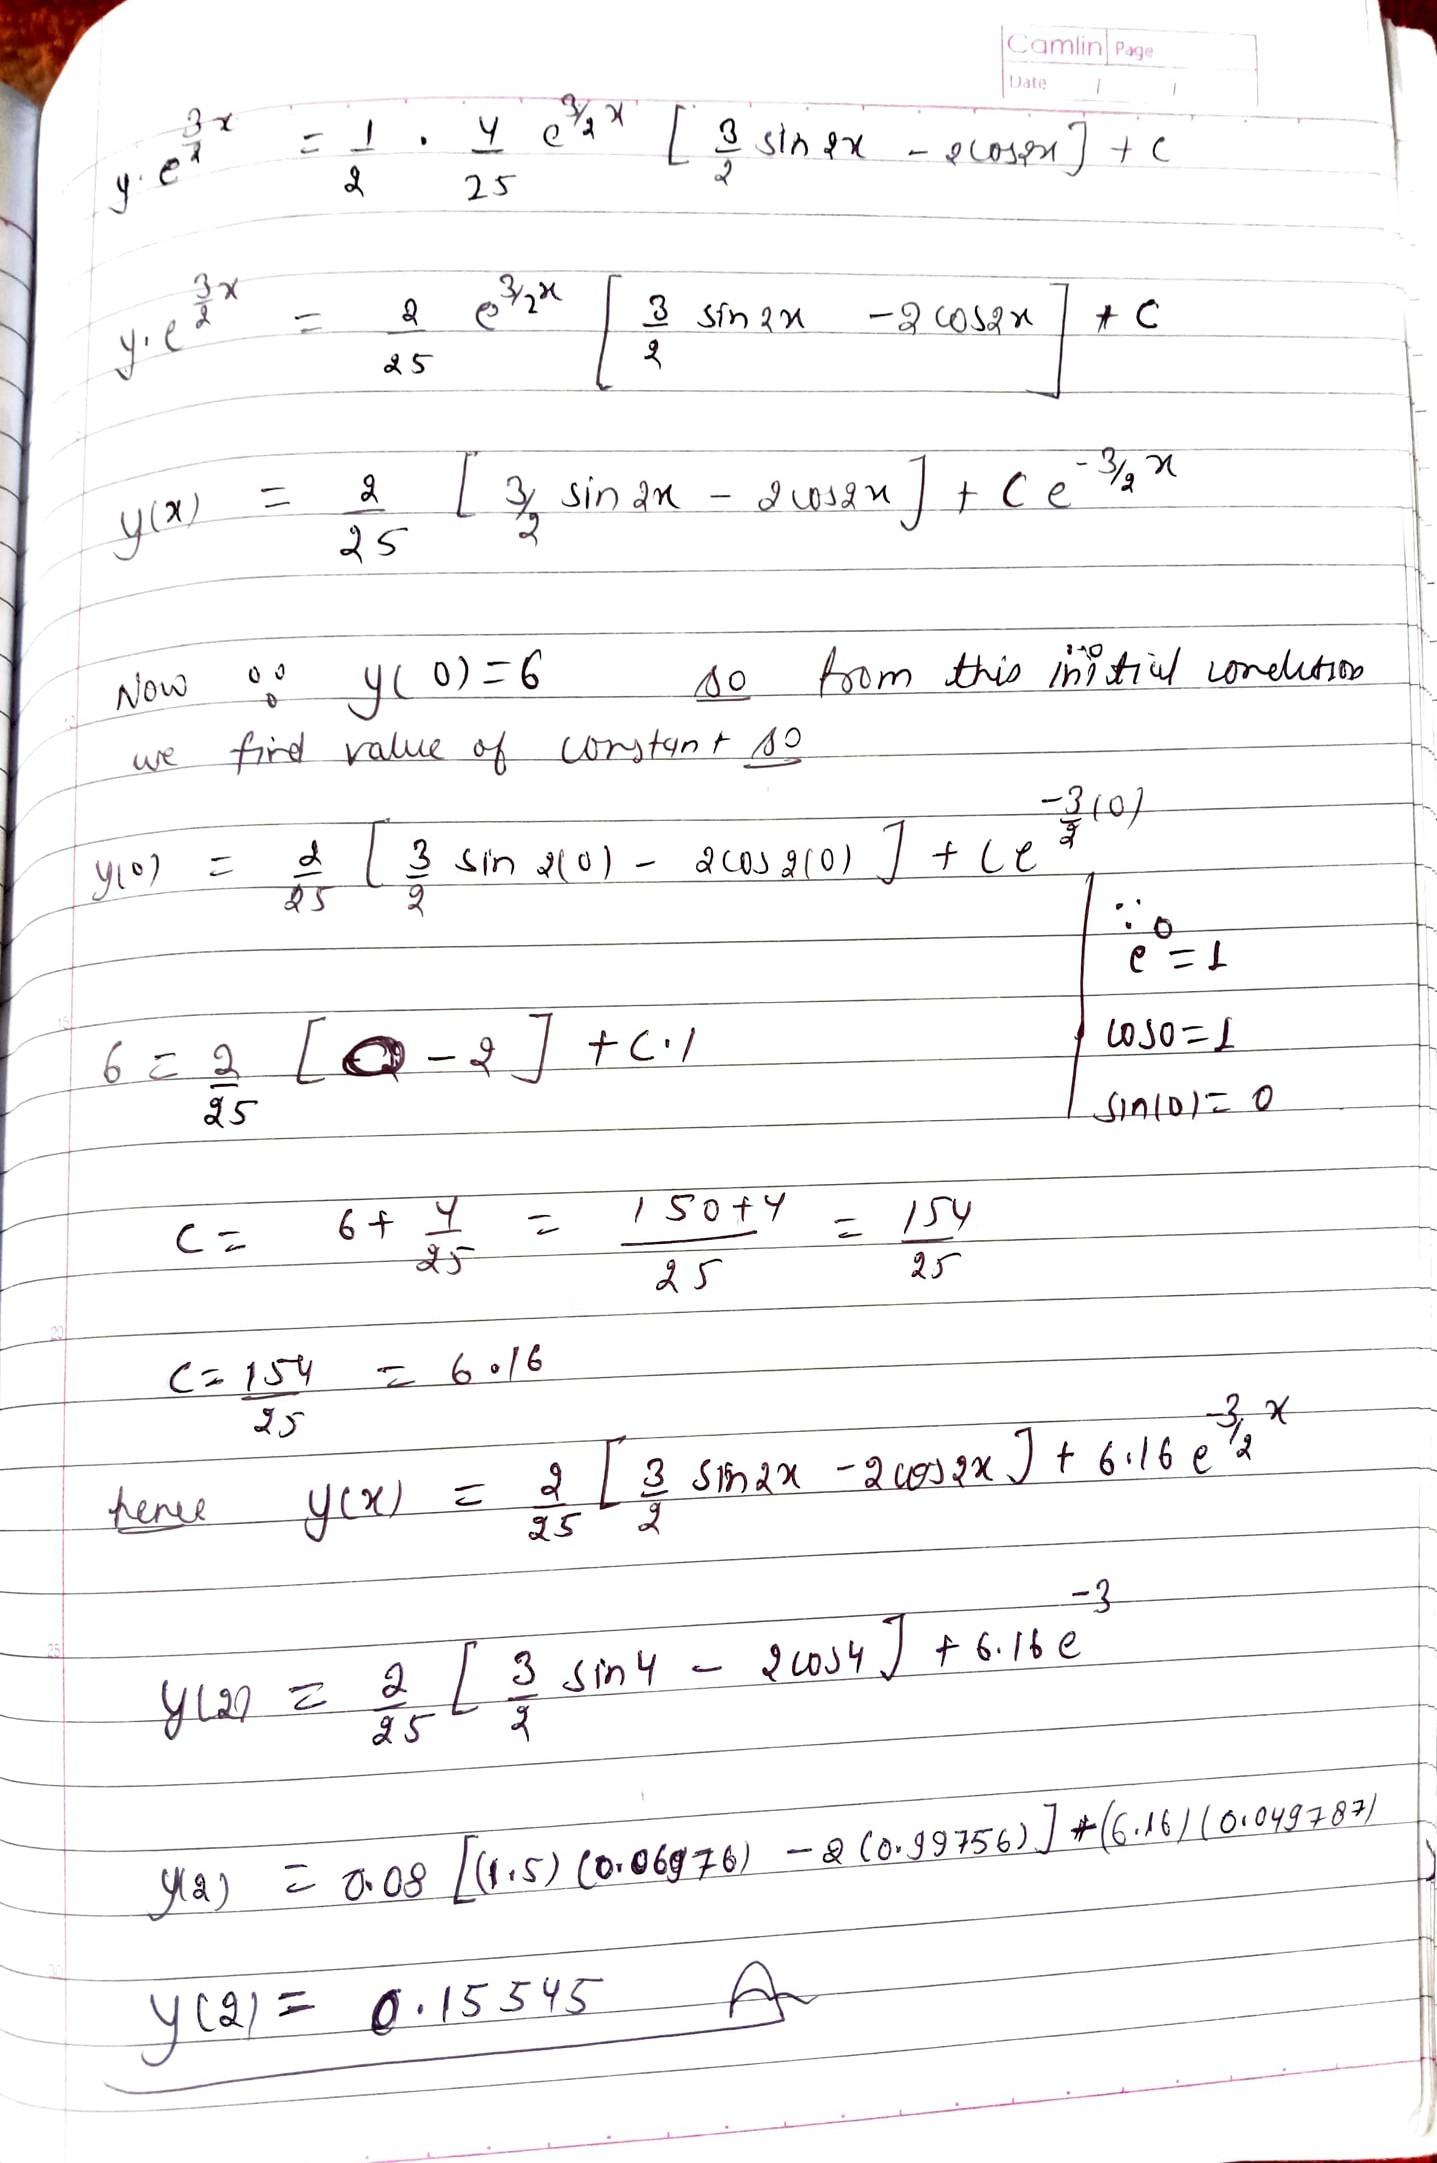 Camlin Page
Date / /
y·e^{3/2 x} = 1/2 · 4/25 e^{3/2 x} [3/2 sin 2x - 2cos2x] + c
y·e^{3/2 x} = 2/25 e^{3/2 x} [3/2 sin 2x - 2 cos2x] + C
y(x) = 2/25 [3/2 sin 2x - 2cos2x] + C e^{-3/2 x}
Now ∵ y(0)=6 so from this initial condition
we find value of constant so
y(0) = 2/25 [3/2 sin 2(0) - 2cos 2(0)] + Ce^{-3/2(0)}
∵ e^0 = 1
6 = 2/25 [0 - 2] + C·1
cos0=1
sin(0)=0
C = 6 + 4/25 = 150+4/25 = 154/25
C = 154/25 = 6.16
hence y(x) = 2/25 [3/2 sin2x - 2cos2x] + 6.16 e^{-3/2 x}
y(2) = 2/25 [3/2 sin4 - 2cos4] + 6.16 e^{-3}
y(2) = 0.08 [(1.5) (0.06976) - 2 (0.99756)] + (6.16) (0.049787)
y(2) = 0.15545